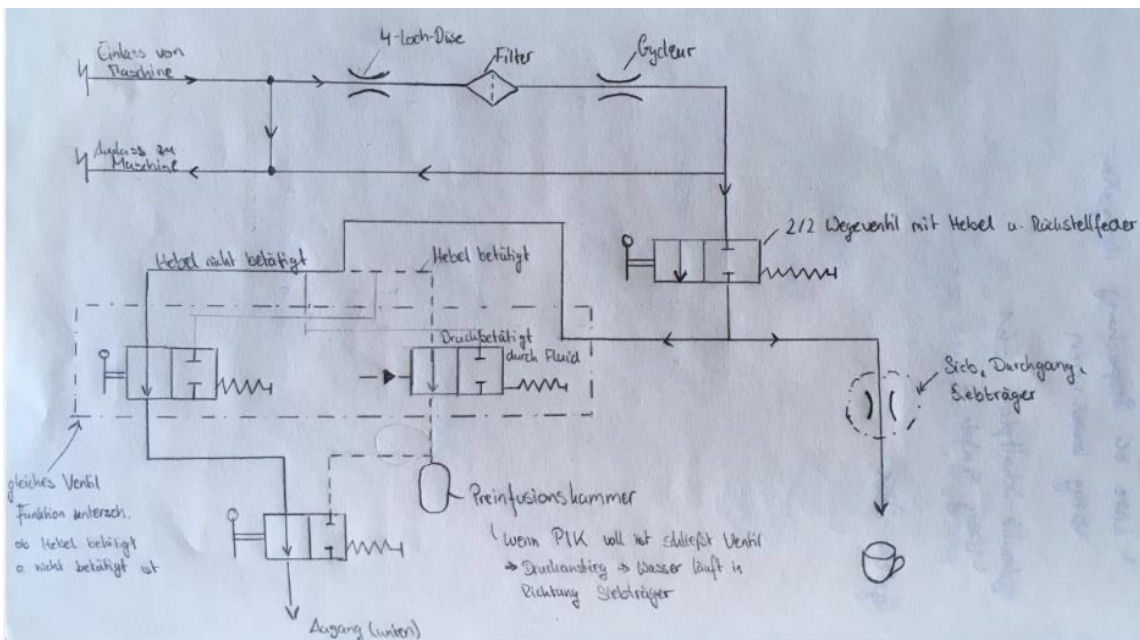 Einlass von
Maschine
4-Loch-Düse
Filter
Gycleur
Auslass zu
Maschine
2/2 Wegeventil mit Hebel u. Rückstellfeder
Hebel nicht betätigt
Hebel betätigt
Druckbetätigt
durch Fluid
Sieb, Durchgang,
Siebträger
gleiches Ventil
Funktion untersch.
ob Hebel betätigt
o. nicht betätigt ist
Preinfusionskammer
wenn PIK voll ist schließt Ventil
→ Druckanstieg → Wasser läuft in
Richtung Siebträger
Ausgang (unten)